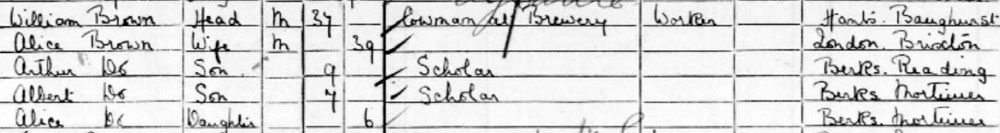 William Brown Head M 37 Cowman at Brewery Worker Hants. Baughurst
Alice Brown Wife M 39 London. Brixton
Arthur Do Son 9 Scholar Berks. Reading
Albert Do Son 7 Scholar Berks Mortimer
Alice Do Daughter 6 Berks. Mortimer